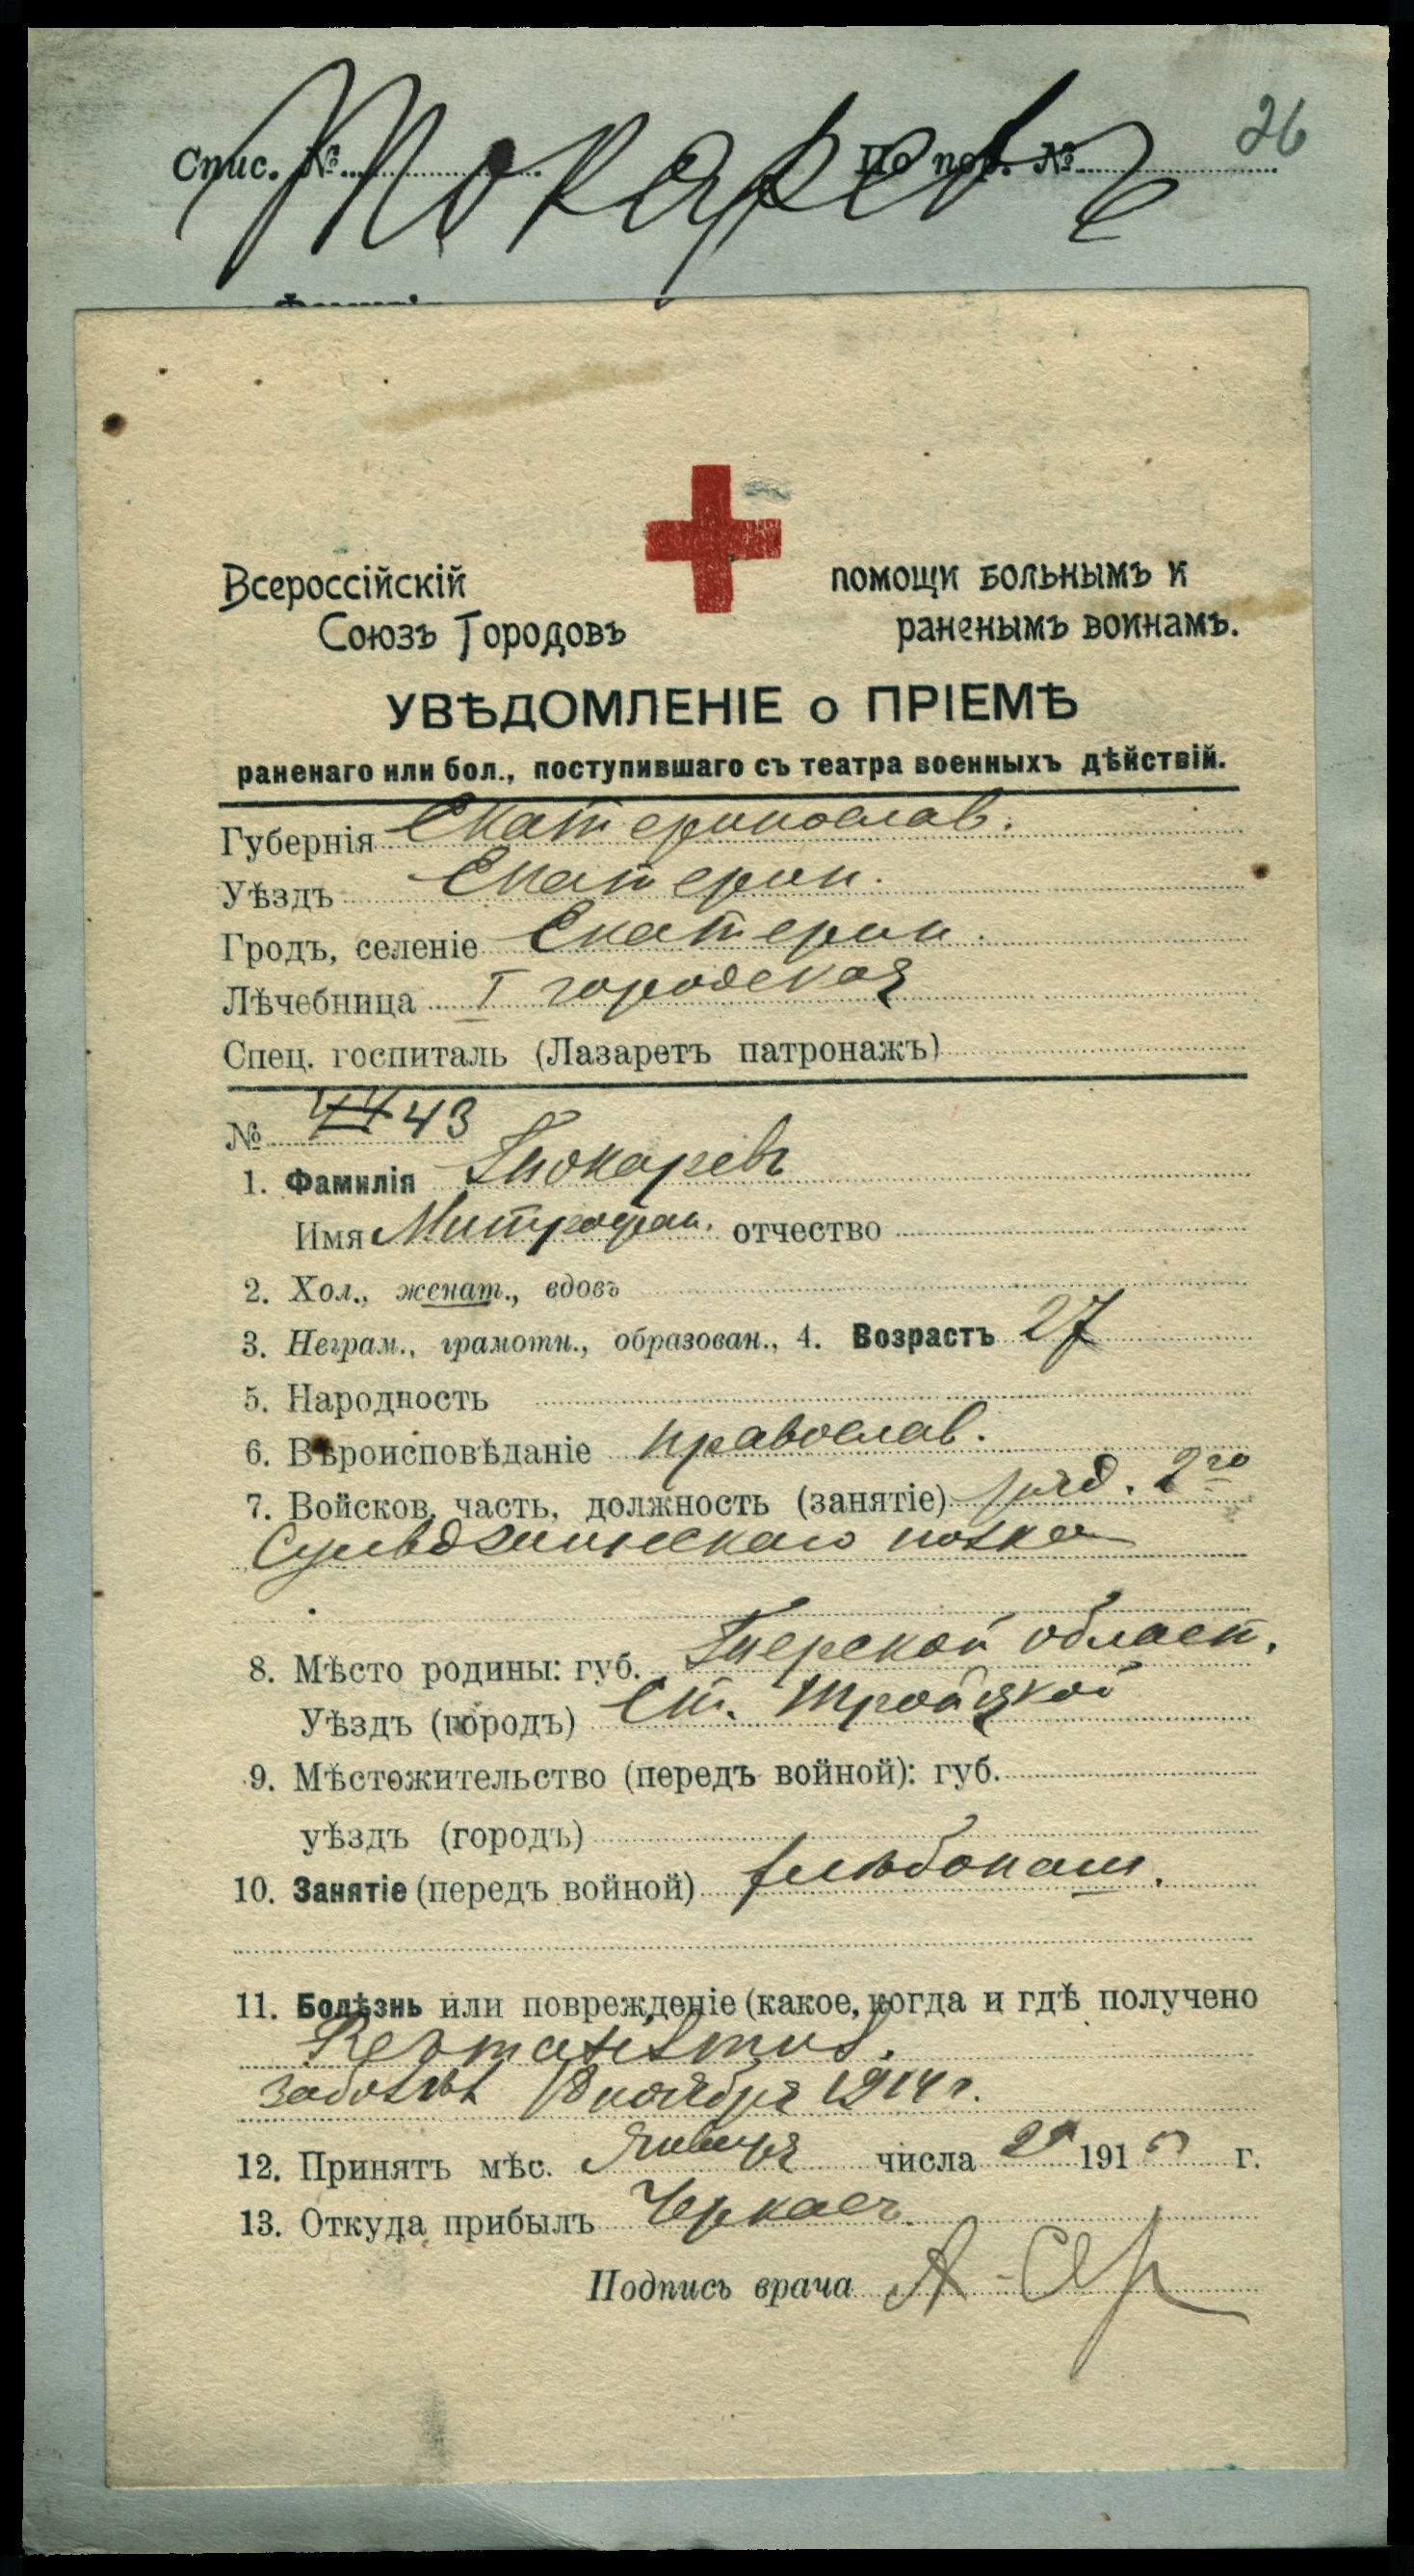 Токаревъ
Спис. № По пор. № 26
Всероссійскій помощи больнымъ и
Союзъ Городовъ раненымъ воинамъ.
УВѢДОМЛЕНІЕ о ПРІЕМѢ
раненаго или бол., поступившаго съ театра военныхъ дѣйствій.
Губернія Екатеринослав.
Уѣздъ Екатерин.
Гродъ, селеніе Екатерин.
Лѣчебница I городская
Спец. госпиталь (Лазаретъ патронажъ)
№ 43
1. Фамилія Токаревъ
Имя Митрофан. отчество
2. Хол., женат., вдовъ
3. Неграм., грамотн., образован., 4. Возрастъ 27
5. Народность
6. Вѣроисповѣданіе православ.
7. Войсков. часть, должность (занятіе) ряд. 2го
полка
8. Мѣсто родины: губ. Терской област.
Уѣздъ (городъ) Ст. Тройцкой
9. Мѣстожительство (передъ войной): губ.
уѣздъ (городъ)
10. Занятіе (передъ войной) хлѣбопаш.
11. Болѣзнь или поврежденіе (какое, когда и гдѣ получено
заболѣл 18 ноября 1914 г.
12. Принятъ мѣс. Января числа 191 г.
13. Откуда прибылъ Черкас.
Подпись врача